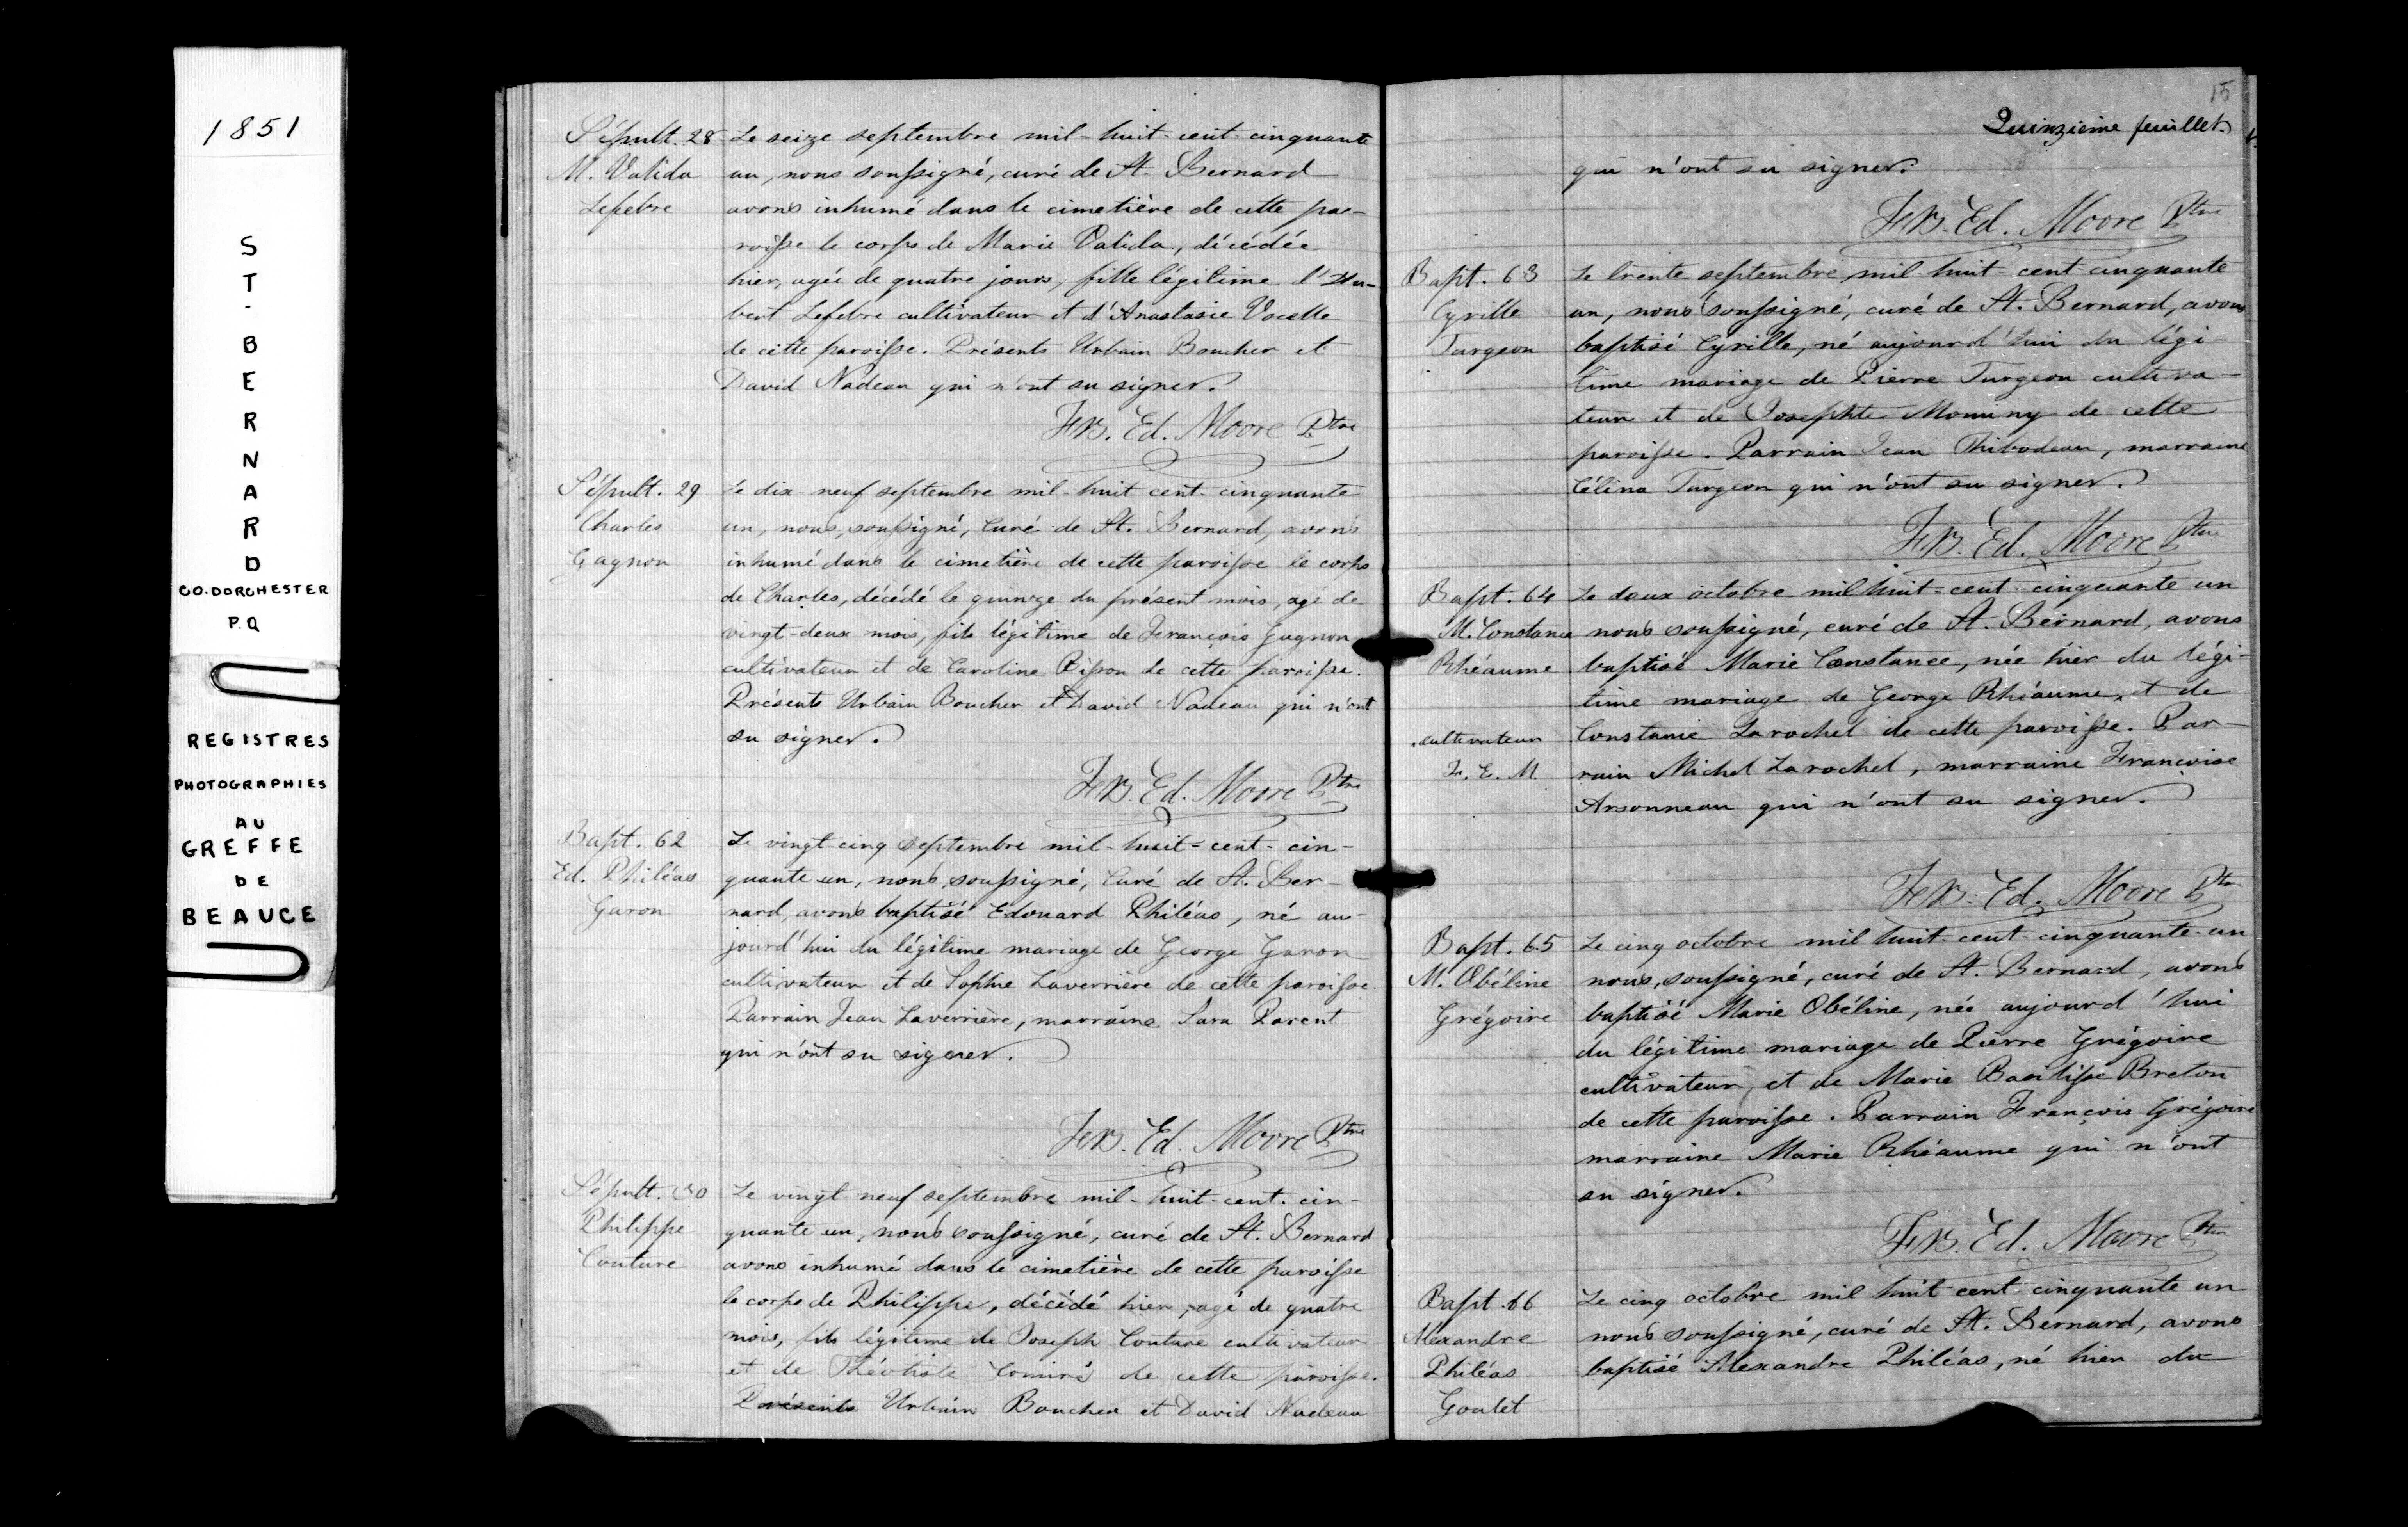 1851
ST. BERNARD
CO. DORCHESTER
P.Q
REGISTRES
PHOTOGRAPHIES
AU
GREFFE
DE
BEAUCE
Sépult. 28
M. Valida
Lefebre
Le seize septembre mil-huit-cent-cinquante
un, nous soussigné, curé de St. Bernard
avons inhumé dans le cimetière de cette pa-
roisse le corps de Marie Valida, décédée
hier, agée de quatre jours, fille légitime d'Hu-
bert Lefebre cultivateur et d'Anastasie Vocelle
de cette paroisse. Présents Urbain Boucher et
David Nadeau qui n'ont su signer.
Frs. Ed. Moore Ptre
Sépult. 29
Charles
Gagnon
Le dix-neuf septembre mil-huit cent-cinquante
un, nous, soussigné, Curé de St. Bernard, avons
inhumé dans le cimetière de cette paroisse le corps
de Charles, décédé le quinze du présent mois, agé de
vingt-deux mois, fils légitime de François Gagnon
cultivateur et de Caroline Bisson de cette paroisse.
Présents Urbain Boucher et David Nadeau qui n'ont
su signer.
Frs. Ed. Moore Ptre
Bapt. 62
Ed. Philéas
Garon
Le vingt-cinq septembre mil-huit-cent-cin-
quante-un, nous, soussigné, Curé de St. Ber-
nard, avons baptisé Edouard Philéas, né au-
jourd'hui du légitime mariage de George Garon
cultivateur et de Sophie Laverrière de cette paroisse.
Parrain Jean Laverrière, marraine Sara Parent
qui n'ont su signer.
Frs. Ed. Moore Ptre
Sépult. 30
Philippe
Couture
Le vingt neuf septembre mil-huit-cent-cin-
quante un, nous soussigné, curé de St. Bernard
avons inhumé dans le cimetière de cette paroisse
le corps de Philippe, décédé hier, agé de quatre
mois, fils légitime de Joseph Couture cultivateur
et de Théotiste Comiré de cette paroisse.
Présents Urbain Boucher et David Nadeau
15
Quinzième feuillet.
qui n'ont su signer.
Frs. Ed. Moore Ptre
Bapt. 63
Cyrille
Turgeon
Le trente septembre mil-huit-cent-cinquante
un, nous soussigné, curé de St. Bernard, avons
baptisé Cyrille, né aujourd'hui du légi-
time mariage de Pierre Turgeon cultiva-
teur et de Josephte Mominy de cette
paroisse. Parrain Jean Thibodeau, marraine
Célina Turgeon qui n'ont su signer.
Frs. Ed. Moore Ptre
Bapt. 64
M. Constance
Rhéaume
cultivateur
Fr. E. M.
Le deux octobre mil huit-cent-cinquante un
nous soussigné, curé de St. Bernard, avons
baptisé Marie Constance, née hier du légi-
time mariage de George Rhéaume, et de
Constance Larochel de cette paroisse. Par-
rain Michel Larochel, marraine Françoise
Arsonneau qui n'ont su signer.
Frs. Ed. Moore Ptre
Bapt. 65
M. Obéline
Grégoire
Le cinq octobre mil huit-cent-cinquante-un
nous, soussigné, curé de St. Bernard, avons
baptisé Marie Obéline, née aujourd'hui
du légitime mariage de Pierre Grégoire
cultivateur, et de Marie Basilisse Breton
de cette paroisse. Parrain François Grégoire
marraine Marie Rhéaume qui n'ont
su signer.
Frs. Ed. Moore Ptre
Bapt. 66
Alexandre
Philéas
Goulet
Le cinq octobre mil huit cent cinquante un
nous soussigné, curé de St. Bernard, avons
baptisé Alexandre Philéas, né hier du